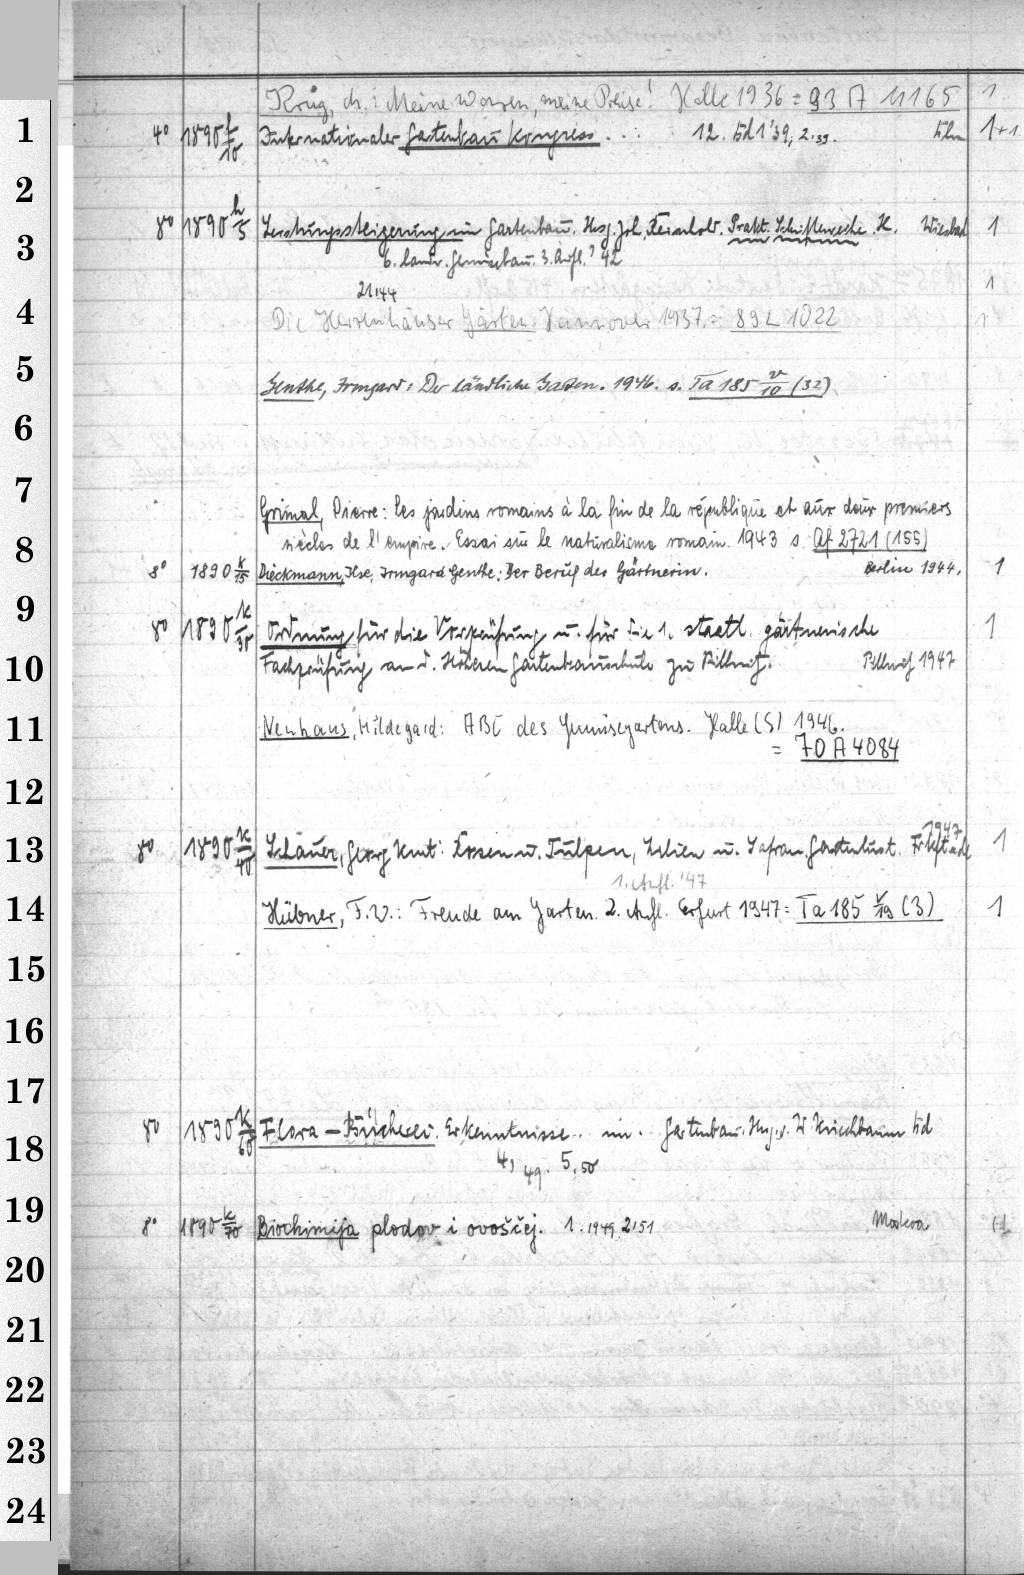 Krug, ch.: Meine Waren, meine Preise! Halle 1936 = 93 A 11165 1
1 4° 1890 h/10 Internationaler Gartenbau Kongress. ... 12. Bd 1'39, 2.39. Bln 1+1
2
8° 1890 h/5 Leistungssteigerung im Gartenbau. Hsg. Joh. Reinhold. Prakt. Schriftenreihe. H. Wiesbad 1
3 6. Gemüsebau. 3. Aufl.' 42
21,44 1
4 Die Herrenhäuser Gärten. Hannover 1937 = 89 L 1022 1
5 Genthe, Irmgard: Der ländliche Garten. 1946. s. Ta 185 v/10 (32)
6
7 Grimal, Pierre: Les jardins romains à la fin de la république et aux deux premiers
8 siècles de l'empire. Essai sur le naturalisme romain. 1943 s. Af 2721 (155)
8° 1890 k/15 Dieckmann, Ilse, Irmgard Genthe: Der Beruf der Gärtnerin. Berlin 1944. 1
9 8° 1890 k/30 Ordnung für die Vorprüfung u. für die 1. staatl. gärtnerische 1
10 Fachprüfung an d. Höheren Gartenbauschule zu Pillnitz. Pillnitz 1947
11 Neuhaus, Hildegard: ABC des Gemüsegartens. Halle (S) 1946.
= 70 A 4084
12
1947
13 8° 1890 k/40 Schauer, Georg Kurt: Rosen u. Tulpen, Lilien u. Safran. Gartenlust. 1
1. Aufl. '47
14 Hübner, F.W.: Freude am Garten. 2. Aufl. Erfurt 1947 = Ta 185 v/19 (3) 1
15
16
17
18 8° 1890 k/60 Flora-Bücherei. Erkenntnisse.. im. Gartenbau. Hsg. v. W. Kriechbaum Bd
4, 49. 5,50
19 8° 1890 k/70 Biochimija plodov i ovoščej. 1. 1949, 2'51 Moskva
20
21
22
23
24